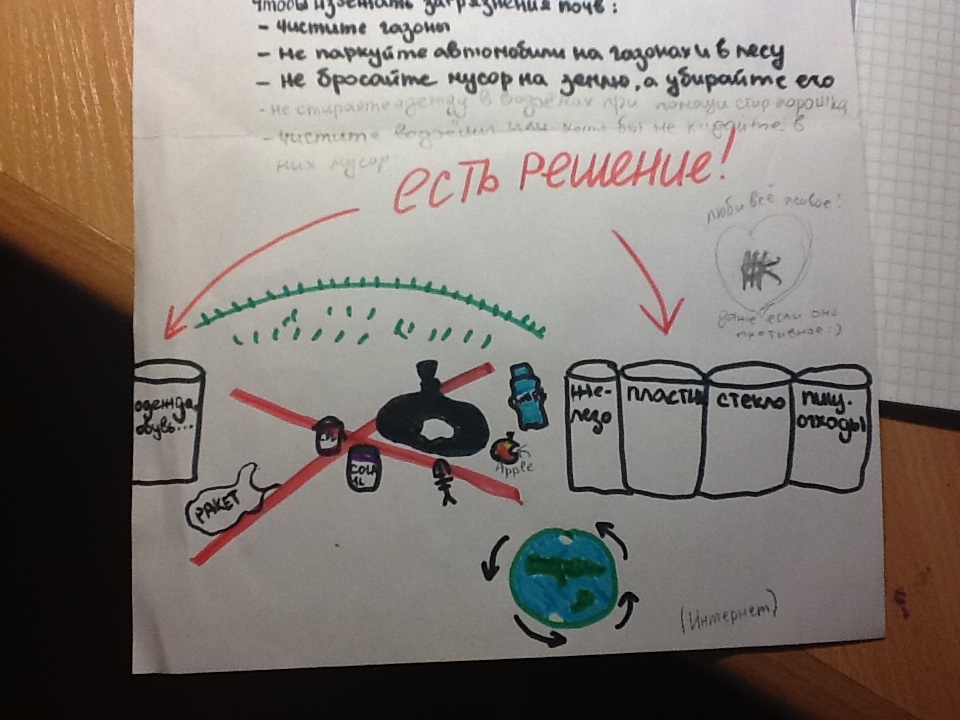 Чтобы избежать загрязнения почв:
- чистите газоны
- не паркуйте автомобили на газонах и в лесу
- не бросайте мусор на землю, а убирайте его
- не стирайте одежду в водоёмах при помощи стир порошка
- чистите водоёмы или хотя бы не кидайте в
них мусор
есть решение!
люби всё живое!
даже если оно
противное :)
одежда,
обувь...
желе-
зо
пластик
стекло
пищ.
отходы
COLA
1L
Apple
РАКЕТ
(Интернет)